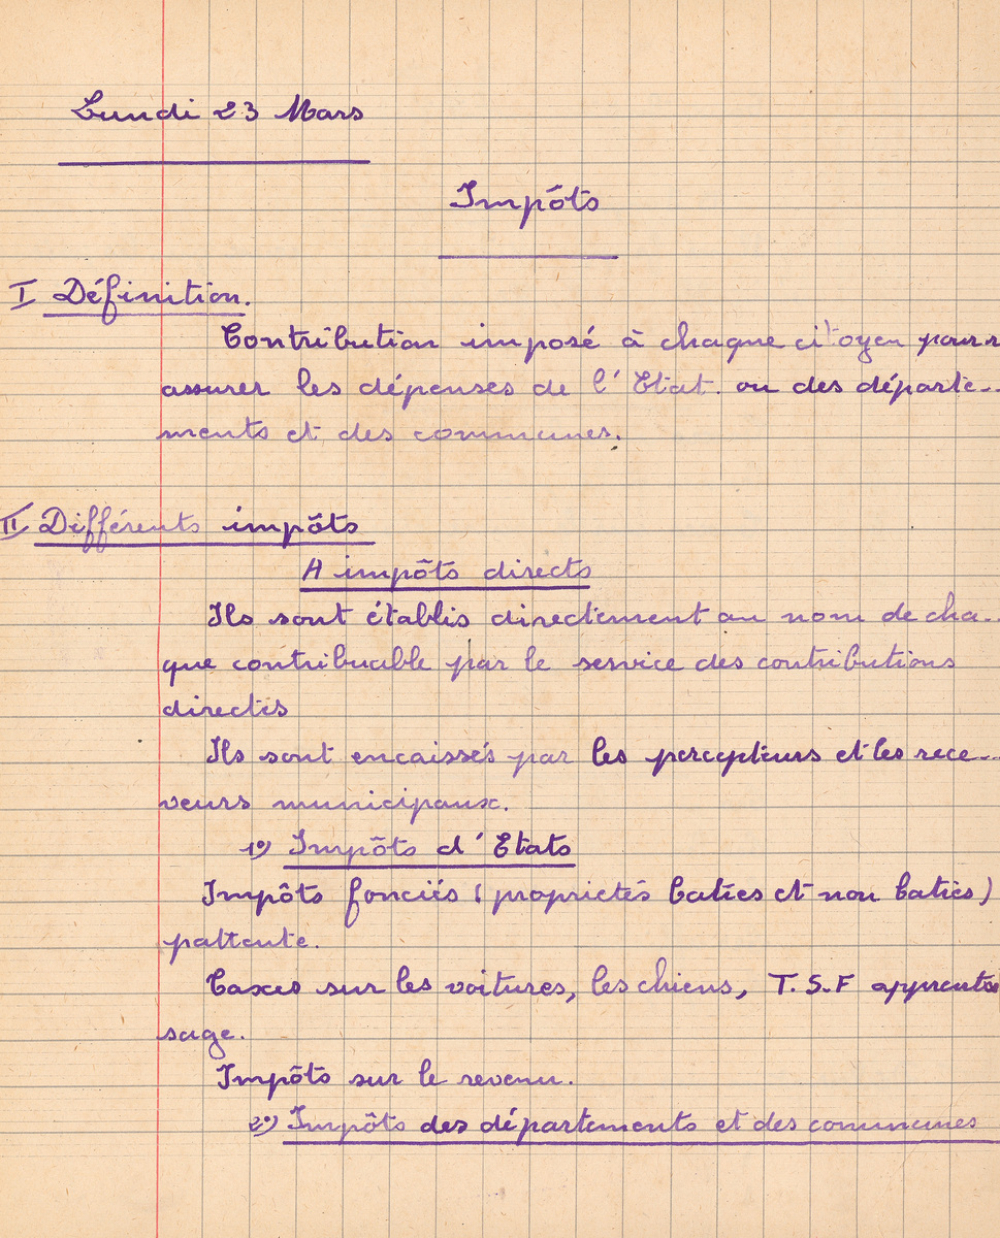 Lundi 23 Mars
Impôts
I Définition.
Contribution imposé à chaque citoyen pour
assurer les dépenses de l'Etat. ou des départe-
ments et des communes.
II Différents impôts
A impôts directs
Ils sont établis directement au nom de cha-
que contribuable par le service des contributions
directes
Ils sont encaissés par les percepteurs et les rece-
veurs municipaux.
1º) Impôts d'Etats
Impôts fonciés (proprietés baties et non baties)
pattente.
Taxes sur les voitures, les chiens, T.S.F apprentis
sage.
Impôts sur le revenu.
2º) Impôts des départements et des communes